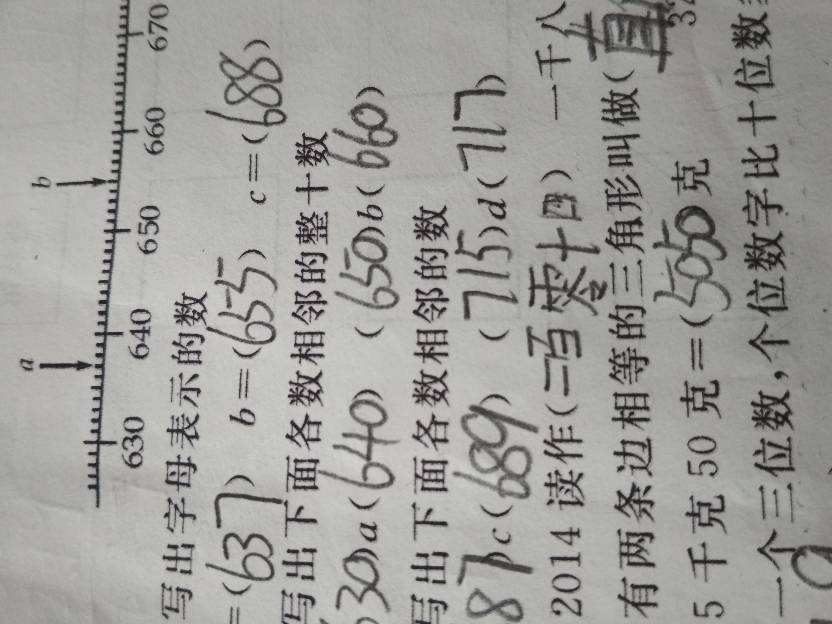 a b
630 640 650 660 670
写出字母表示的数
=(637) b=(655) c=(688)
写出下面各数相邻的整十数
30)a(640) (650)b(660)
写出下面各数相邻的数
87)c(689) (715)d(717)
2014 读作(二百零十四) 一千八
有两条边相等的三角形叫做(
5 千克 50 克=(5050克
一个三位数,个位数字比十位数